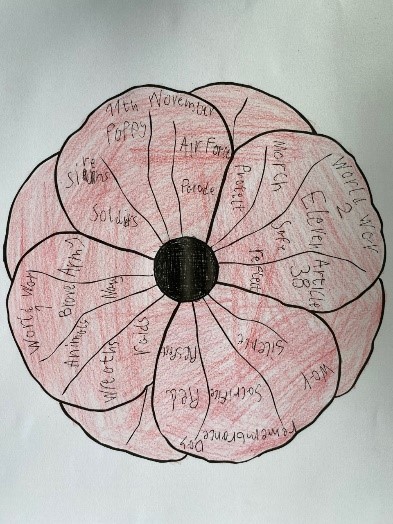 11th November
Poppy
Air Force
Sirens
Parade
Soldiers
March
Protect
World War
2
Eleven
Article
38
Safe
respect
World War
1
Brave
Army
Navy
Animals
Wreaths
raids
Silence
War
Sacrifice
Red
remembrance
Day